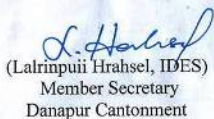 L. Hrahsel
(Lalrinpuii Hrahsel, IDES)
Member Secretary
Danapur Cantonment